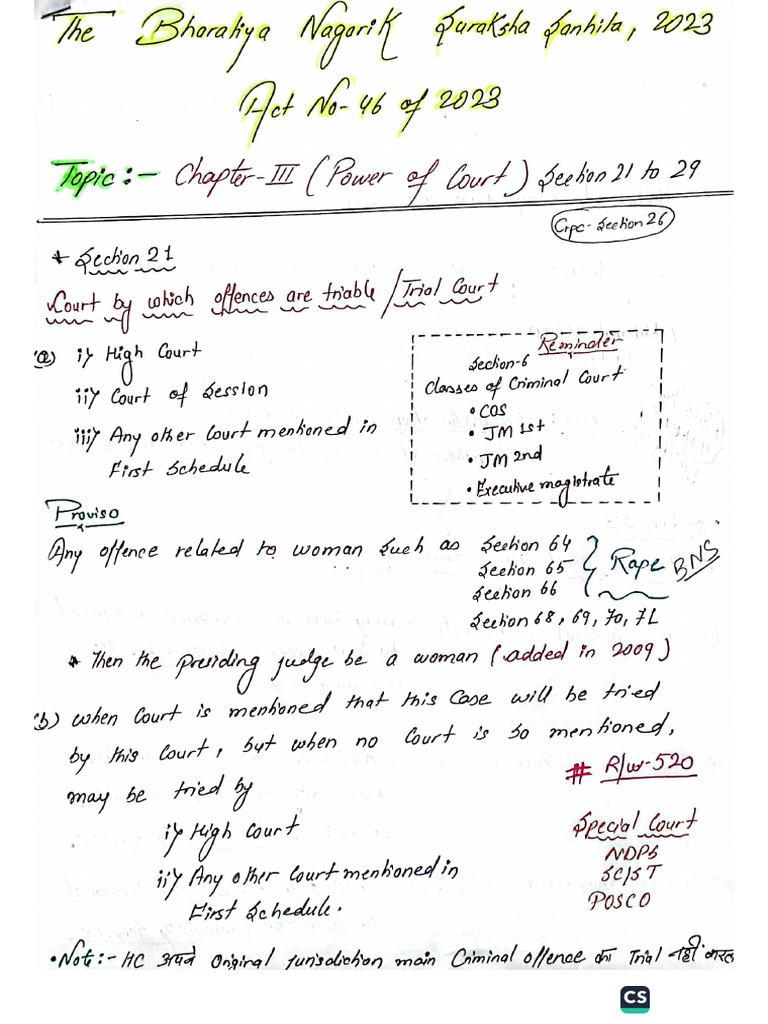 The Bharatiya Nagarik Suraksha Sanhita, 2023
Act No-46 of 2023
Topic:- Chapter-III (Power of Court) Section 21 to 29
Crpc- Section 26
* Section 21
Court by which offences are triable/Trial Court
(a) i) High Court
ii) Court of Session
iii) Any other Court mentioned in
First Schedule
Reminder
Section-6
Classes of Criminal Court
• COS
• JM 1st
• JM 2nd
• Executive magistrate
Proviso
Any offence related to woman such as Section 64
Section 65
Section 66
Rape BNS
Section 68, 69, 70, 71
* Then the presiding judge be a woman (added in 2009)
(b) when Court is mentioned that this Case will be tried
by this Court, but when no Court is so mentioned,
may be tried by
# R/w-520
i) High Court
ii) Any other Court mentioned in
First Schedule.
Special Court
NDPS
SC/ST
POSCO
•Note:- HC अपने Original jurisdiction main Criminal offence का Trial नहीं करता
CS